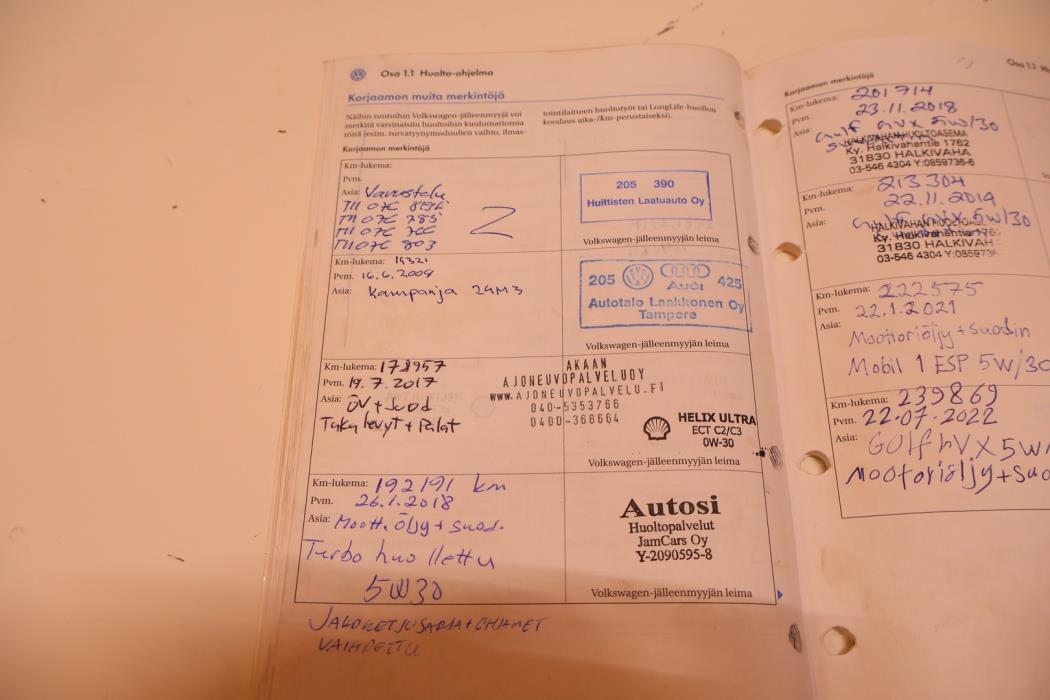 Osa 1.1 Huolto-ohjelma
Korjaamon muita merkintöjä
Näihin ruutuihin Volkswagen-jälleenmyyjä voi
merkitä varsinaisiin huoltoihin kuulumattomia
töitä (esim. turvatyynymoduulien vaihto, ilmas-
tointilaitteen huoltotyöt tai LongLife-huollon
koodaus aika-/km-perustaiseksi).
Korjaamon merkintöjä
Km-lukema:
Pvm.
Asia: Varustelu
Z
205 390
Huittisten Laatuauto Oy
Volkswagen-jälleenmyyjän leima
Km-lukema: 19321
Pvm. 16.6.2009
Asia: Kampanja 24M3
205 Audi 425
Autotalo Laakkonen Oy
Tampere
Volkswagen-jälleenmyyjän leima
Km-lukema: 178957
Pvm. 19.7.2017
Asia: ÖV + Suod
Taka levyt + Palat
AKAAN
AJONEUVOPALVELUOY
www.AJONEUVOPALVELU.FI
040-5353766
0400-368664
HELIX ULTRA
ECT C2/C3
0W-30
Volkswagen-jälleenmyyjän leima
Km-lukema: 192191 km
Pvm. 26.1.2018
Asia: Moott. Öljy + Suod.
Turbo huollettu
5W30
Autosi
Huoltopalvelut
JamCars Oy
Y-2090595-8
Volkswagen-jälleenmyyjän leima
JAKOKETJUSARJA + OHJAIMET
VAIHDETTU
Osa 1.1
Korjaamon merkintöjä
Km-lukema: 201714
Pvm. 23.11.2018
Asia: Gulf GVX 5W/30
HALKIVAHAN HUOLTOASEMA
Ky. Halkivahantie 1762
31830 HALKIVAHA
03-546 4304 Y:0859736-6
Km-lukema: 213304
Pvm. 22.11.2019
Asia: Gulf GVX 5W/30
HALKIVAHAN HUOLTOASEMA
Ky. Halkivahantie 176
31830 HALKIVAH
03-546 4304 Y:085973
Km-lukema: 222575
Pvm. 22.1.2021
Asia:
Moottoriöljy + Suodin
Mobil 1 ESP 5W/30
Km-lukema: 239869
Pvm. 22.07.2022
Asia:
Moottoriöljy + Suo